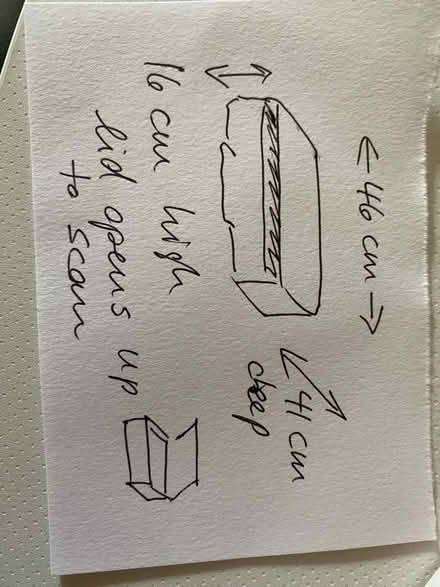 ←46 cm→
↙41 cm
deep
16 cm high
lid opens up
to scan